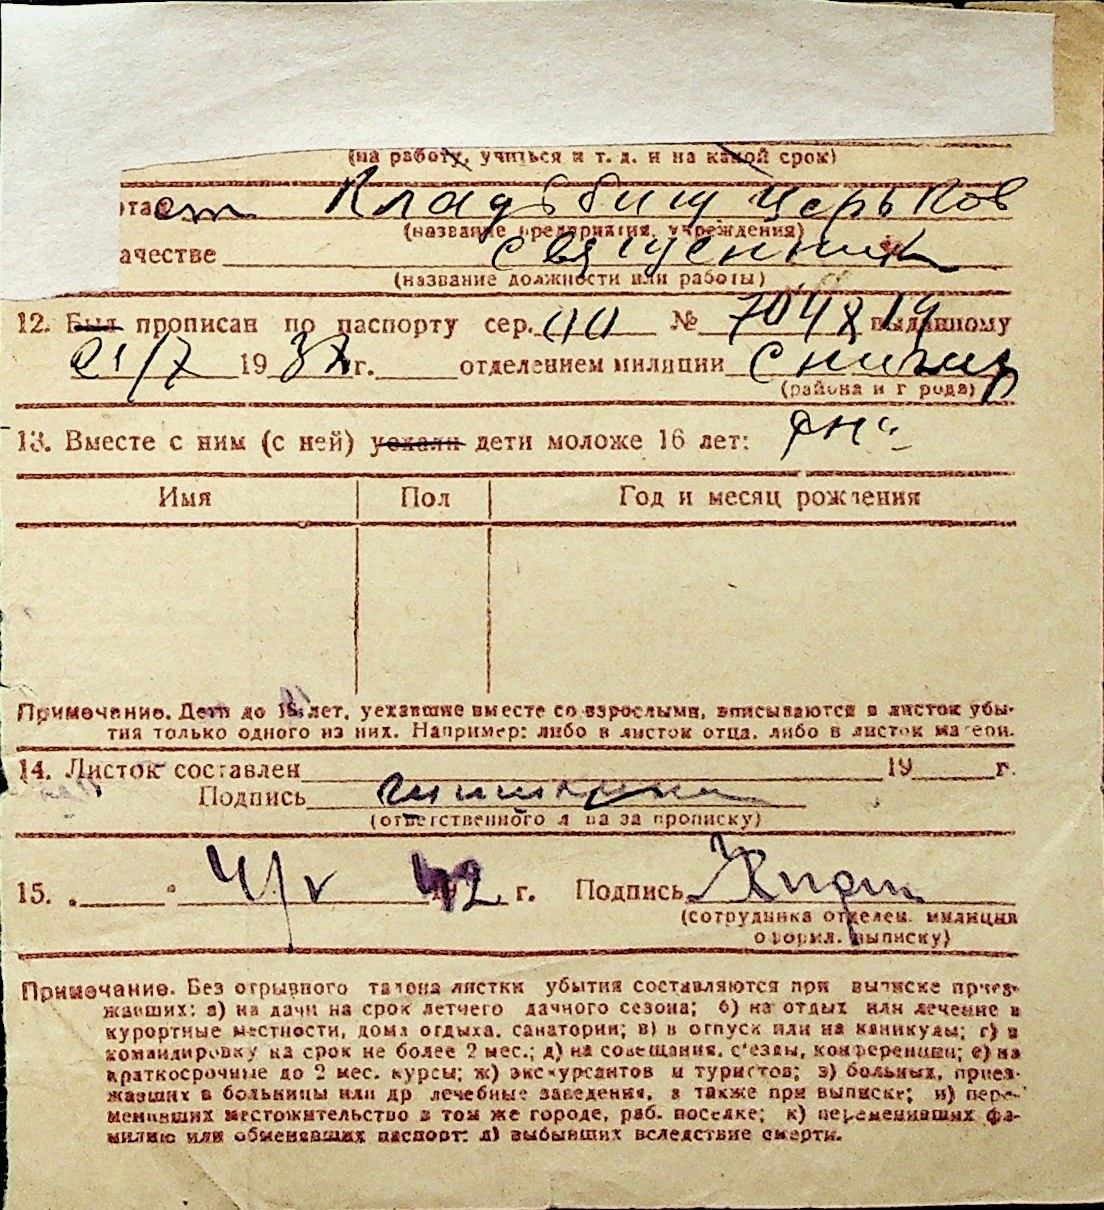 (на работу, учиться и т. д. и на какой срок)
ота ет Кладьбищ церьков
(название предприятия, учреждения)
ачестве священник
(название должности или работы)
12. Был прописан по паспорту сер. № 704819 выданному
21/X 19 37 г. отделением милиции
(района и г рода)
13. Вместе с ним (с ней) уехали дети моложе 16 лет:
Имя Пол Год и месяц рождения
Примечание. Дети до 15 лет, уехавшие вместе со взрослыми, вписываются в листок убы-
тия только одного из них. Например: либо в листок отца, либо в листок матери.
14. Листок составлен 19 г.
Подпись
(ответственного л ца за прописку)
15. „ " 4/V 42 г. Подпись
(сотрудника отделен. милиции
оформл. выписку)
Примечание. Без отрывного талона листки убытия составляются при выписке приез-
жавших: а) на дачи на срок летнего дачного сезона; б) на отдых или лечение в
курортные местности, дома отдыха, санатории; в) в отпуск или на каникулы; г) в
командировку на срок не более 2 мес.; д) на совещания, с'езды, конференции; е) на
краткосрочные до 2 мес. курсы; ж) экскурсантов и туристов; з) больных, приез-
жавших в больницы или др лечебные заведения, а также при выписке; и) пере-
менивших местожительство в том же городе, раб. поселке; к) переменивших фа-
милию или обменявших паспорт; л) выбывших вследствие смерти.